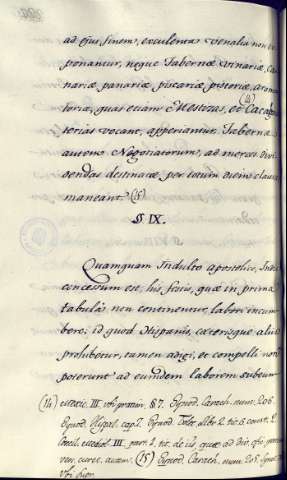 ad ejus finem, exculenta venalia non ex
ponantur, neque Tabernæ vinariæ, Car
nariæ panariæ piscariæ pistoriæ, aroma
toriæ, quas etiam Mestizas, et (14) Cacahu
terias vocant, apperiantur. Tabernæ
autem Negotiatorum, ad merces divi
dendas destinatæ, per totum diem clausæ
maneant. (15)
§ IX.
Quamquam Indulto apostolico, Indis
concesum est, his festis, quæ in prima
tabula non continentur, labori incum
bere; id quod Hispanis, cæterisque aliis
prohibetur, tamen adigi, et compelli non
poterunt ad eundem laborem subeun
(14) Mexic. III. ubi proxim. § 7. Synod. Carach. num. 206.
Synod. Hispal. cap. 7. Synod. Tolet. lib. 2. tit. 6. const. 2.
Concil. Mediol. III. part. 1. tit. de iis, quæ ad Div. offic.
ven. curet. autem. (15) Synod. Carach. num. 205. Synod.
ubi supr.